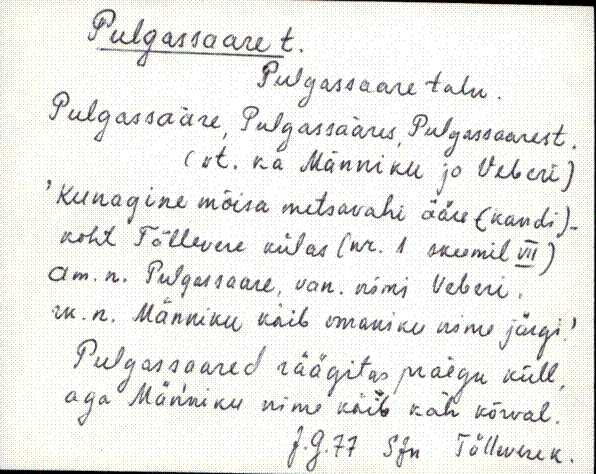 Pulgassaare t.
Pulgassaare talu.
Pulgassääre, Pulgassääres, Pulgassaarest.
(vt. ka Männiku jo Veberi)
'Kunagine mõisa metsavahi ääre-(kandi)-
koht Tõllevere külas (nr. 1 skeemil VII)
am. n. Pulgassaare, van. nimi Veberi,
rk. n. Männiku käib omaniku nime järgi.'
Pulgassaared räägitas praegu küll,
aga Männiku nime käib kah kõrval.
J.G.77 SJn Tõllevere k.